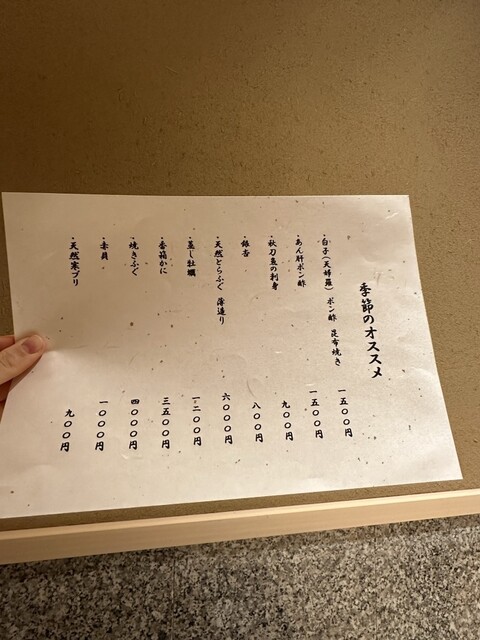 季節のオススメ
・白子(天婦羅) ポン酢 昆布焼き 一五〇〇円
・あん肝ポン酢 一五〇〇円
・秋刀魚の刺身 九〇〇円
・銀杏 八〇〇円
・天然とらふぐ 薄造り 六〇〇〇円
・蒸し牡蠣 一二〇〇円
・香箱かに 三五〇〇円
・焼きふぐ 四〇〇〇円
・赤貝 一〇〇〇円
・天然寒ブリ 九〇〇円